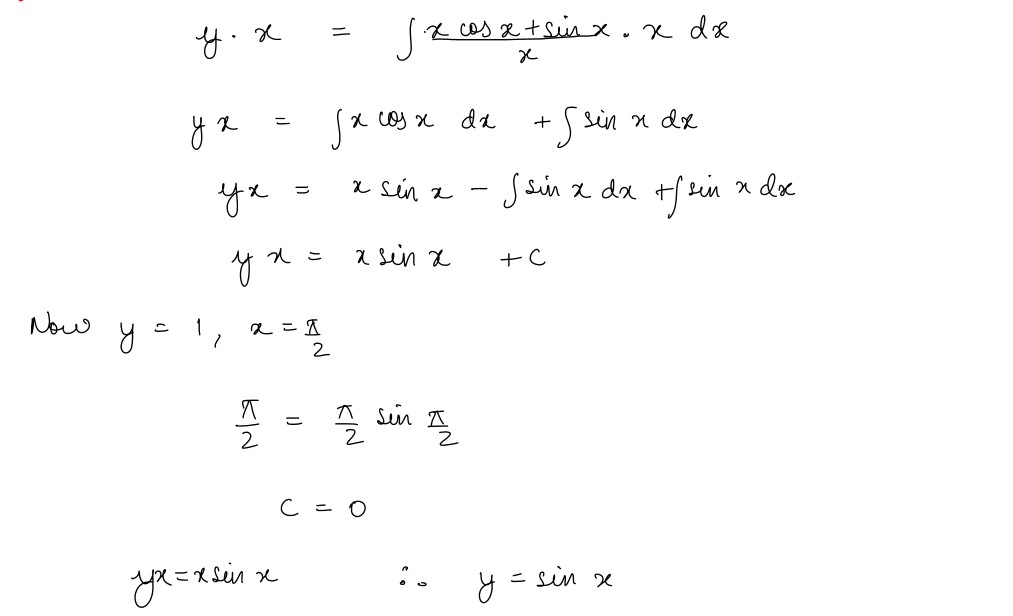 y · x = ∫ x cos x + sin x / x . x dx
y x = ∫ x cos x dx + ∫ sin x dx
y x = x sin x − ∫ sin x dx + ∫ sin x dx
y x = x sin x + C
Now y = 1, x = π/2
π/2 = π/2 sin π/2
C = 0
yx = x sin x ∴ y = sin x